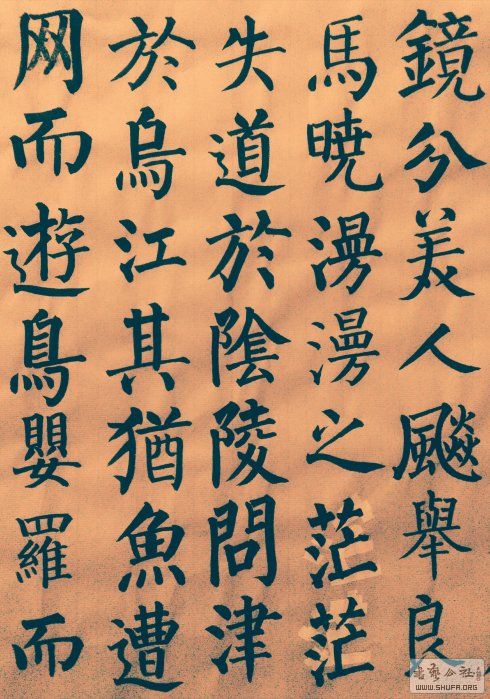 鏡分美人飈舉良
馬曉漫漫之茫茫
失道於陰陵問津
於烏江其猶魚遭
网而遊鳥嬰羅而
书艺公社
WWW.SHUFA.ORG